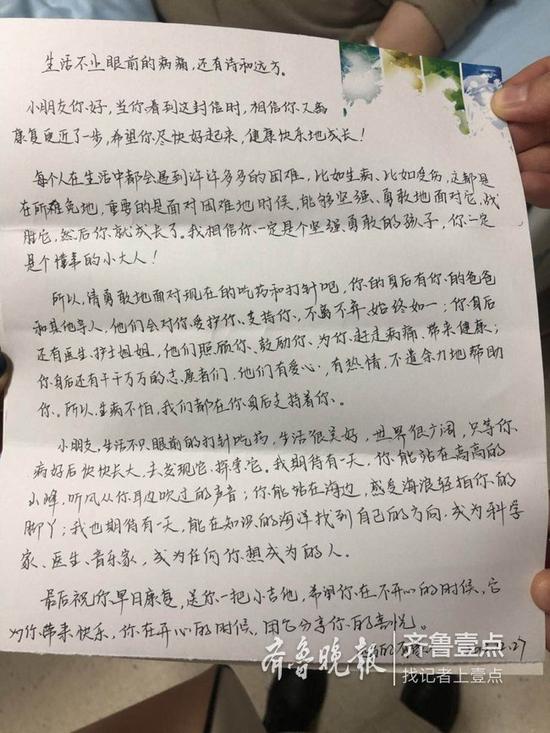 生活不止眼前的病痛,还有诗和远方。
小朋友你好,当你看到这封信时,相信你又离
康复更近了一步,希望你尽快好起来,健康快乐地成长!
每个人在生活中都会遇到许许多多的困难,比如生病、比如受伤,这都是
在所难免地,重要的是面对困难地时候,能够坚强、勇敢地面对它,战
胜它,然后你就成长了。我相信你一定是个坚强、勇敢的孩子,你一定
是个懂事的小大人!
所以,请勇敢地面对现在的吃药和打针吧,你的身后有你的爸爸
和其他亲人,他们会对你爱护你、支持你、不离不弃、始终如一;你身后
还有医生、护士姐姐,他们照顾你、鼓励你、为你赶走病痛、带来健康;
你身后还有千千万万的志愿者们,他们有爱心,有热情,不遗余力地帮助
你。所以,生病不怕,我们都在你身后支持着你、
小朋友,生活不只眼前的打针吃药,生活很美好,世界很广阔,只等你
病好后快快长大,去发现它、探索它。我期待有一天,你能站在高高的
山峰,听风从你耳边吹过的声音;你能站在海边,感受海浪轻拍你的
脚丫;我也期待有一天,能在知识的海洋找到自己的方向,成为科学
家、医生、音乐家,成为任何你想成为的人。
最后祝你早日康复,送你一把小吉他,希望你在不开心的时候,它
为你带来快乐,你在开心的时候,用它分享你的喜悦。
2.27
齐鲁晚报 齐鲁壹点
找记者上壹点